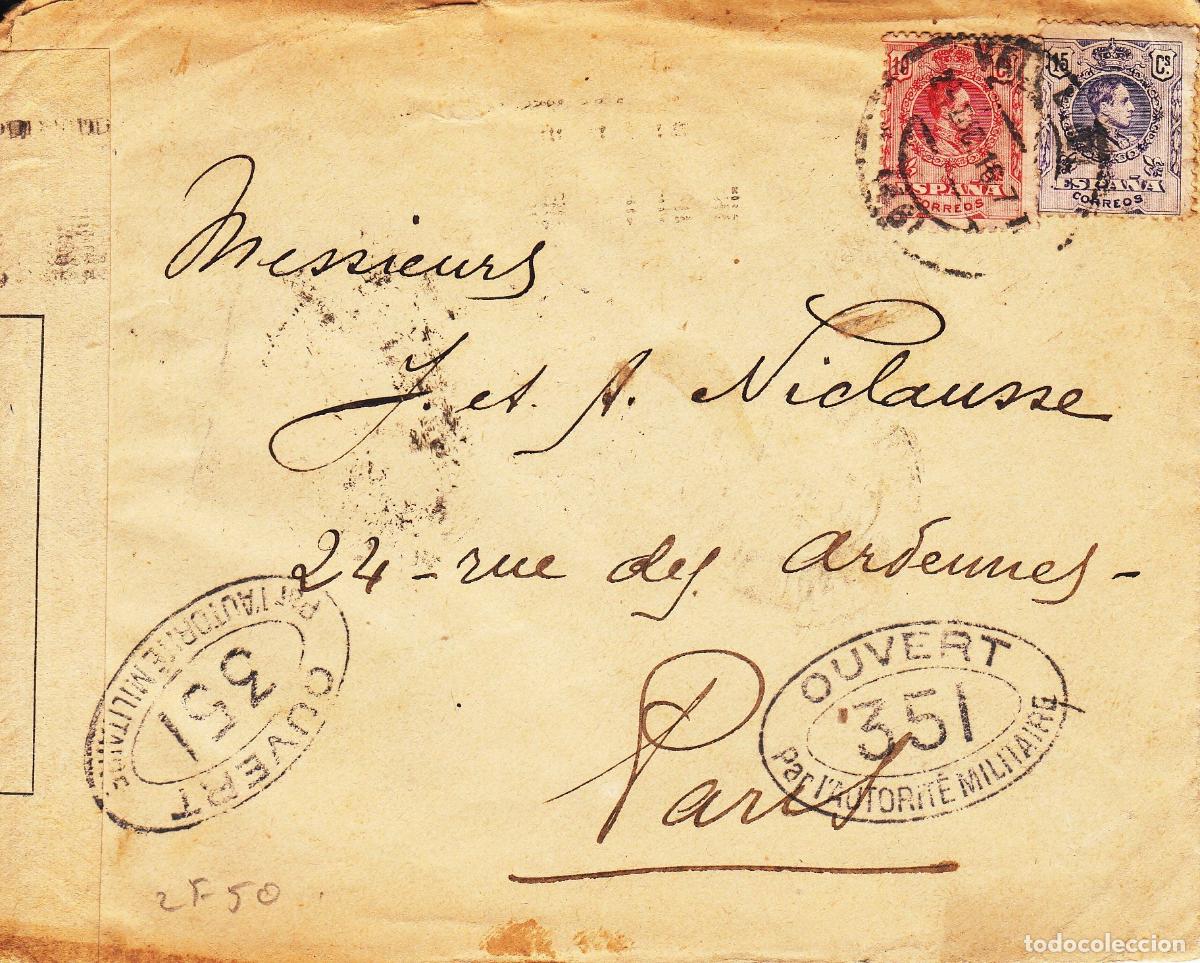 10 Cs
15 Cs
ESPAÑA
CORREOS
ESPAÑA
CORREOS
Messieurs
J. et A. Niclausse
24 - rue des Ardennes -
Paris
OUVERT
351
Par l'AUTORITÉ MILITAIRE
OUVERT
351
Par l'AUTORITÉ MILITAIRE
2F50
todocoleccion